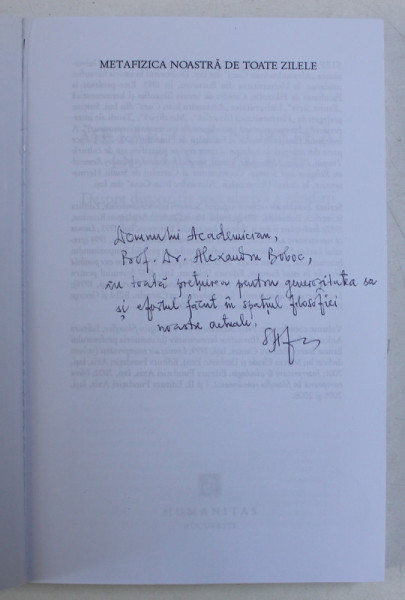 METAFIZICA NOASTRĂ DE TOATE ZILELE
Domnului Academician,
Prof. Dr. Alexandru Boboc,
cu toată prețuirea pentru generozitatea sa
și efortul făcut în spațiul filosofiei
noastre actuale,
HUMANITAS